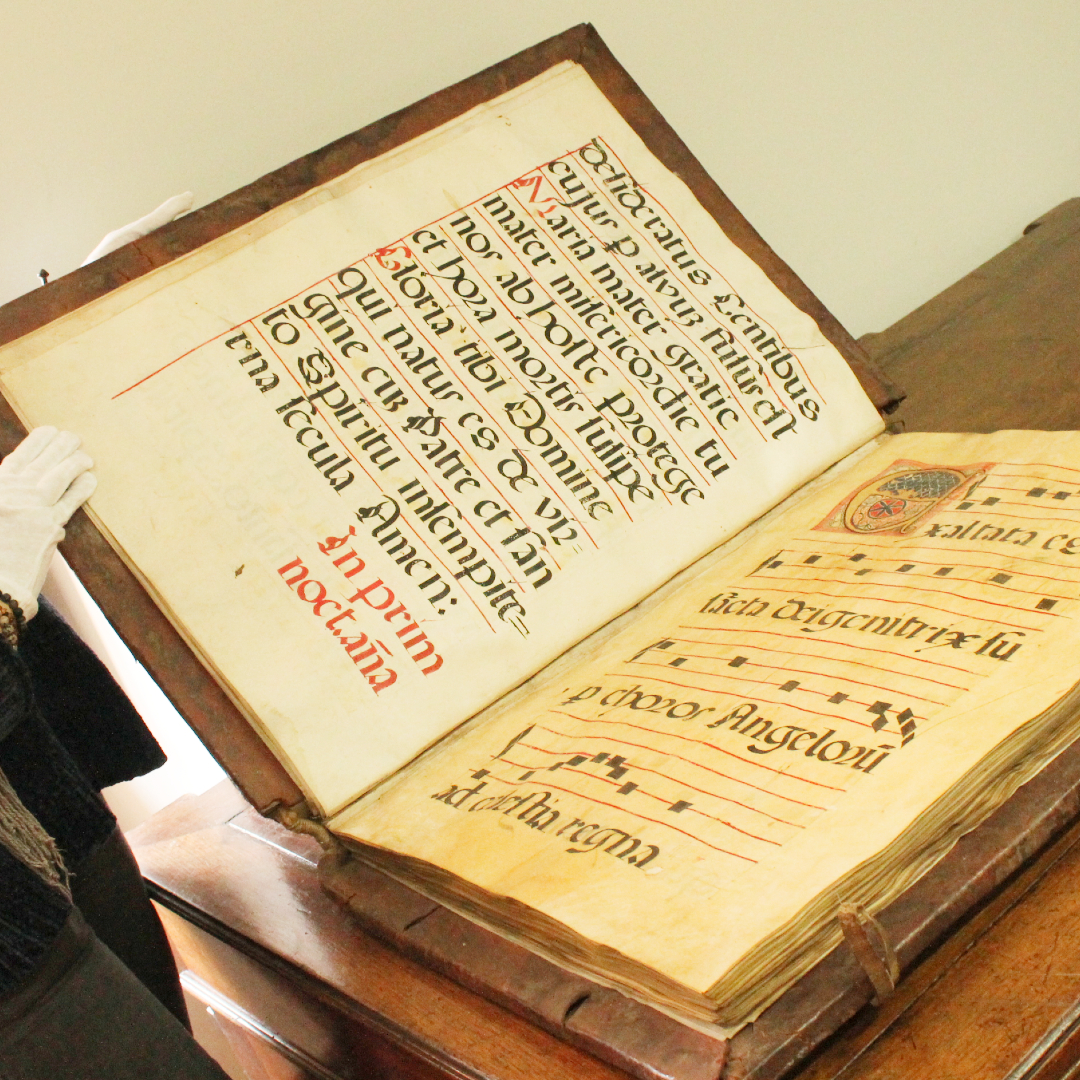 desideratus Gentibus
cujus p alvuz fusus est
Maria mater gratie
mater misericordie tu
nos ab hoste protege
et hora mortis suscipe
Gloria tibi Domine
qui natus es de vir=
gine cuz Patre et san
to Spiritu insempite=
rna seccula Amen:
In prim
noctaña
Exaltata es
sacta deigenitrix su
p choros Angelorū
ad celestia regna